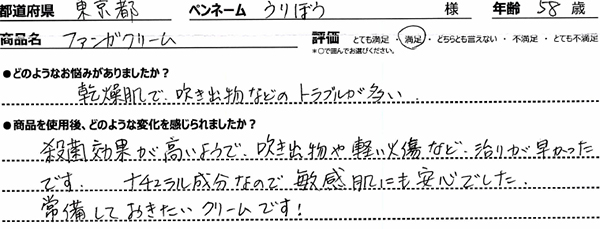 都道府県 東京都 ペンネーム うりぼう 様 年齢 58 歳
商品名 ファンガクリーム 評価 とても満足 ・ 満足 ・ どちらとも言えない ・ 不満足 ・ とても不満足
*○で囲んでお選びください。
●どのようなお悩みがありましたか?
乾燥肌で、吹き出物などのトラブルが多い.
●商品を使用後、どのような変化を感じられましたか?
殺菌効果が高いようで、吹き出物や軽い火傷など、治りが早かった
です. ナチュラル成分なので敏感肌にも安心でした.
常備しておきたいクリームです!